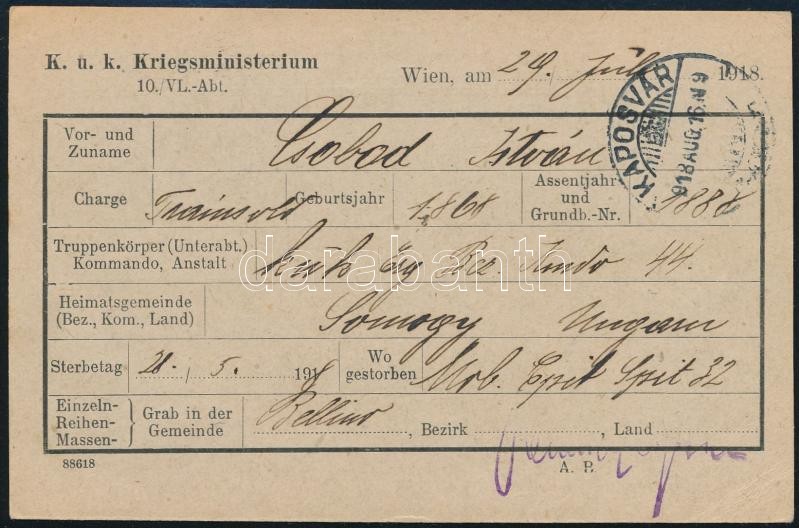 K. u. k. Kriegsministerium
10./VL.-Abt.
Wien, am 29. Juli 1918.
KAPOSVÁR
918 AUG. 16. N 9
Vor- und Zuname Csobod István
Charge Trainsold Geburtsjahr 1868 Assentjahr und Grundb.-Nr. 1888
Truppenkörper (Unterabt.) Kommando, Anstalt kuk Erg Bez. Kmdo 44.
Heimatsgemeinde (Bez., Kom., Land) Somogy Ungarn
Sterbetag 21. / 5. 1918 Wo gestorben Mob. Epid Spit 32
Einzeln- Reihen- Massen- } Grab in der Gemeinde Bellino , Bezirk , Land
88618
A. B.
darabanth